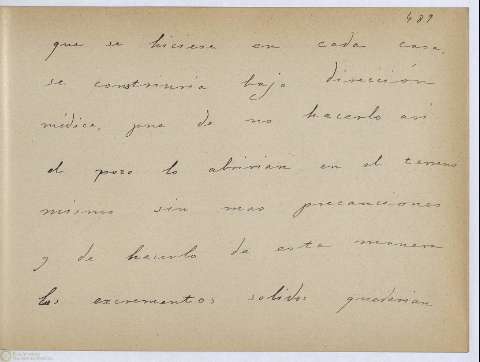 481
que se hiciese en cada casa,
se construiria bajo dirección
médica, pues de no hacerlo asi
el pozo lo abririan en el terreno
mismo sin mas precauciones
y de hacerlo de esta manera
los excrementos solidos quedarian